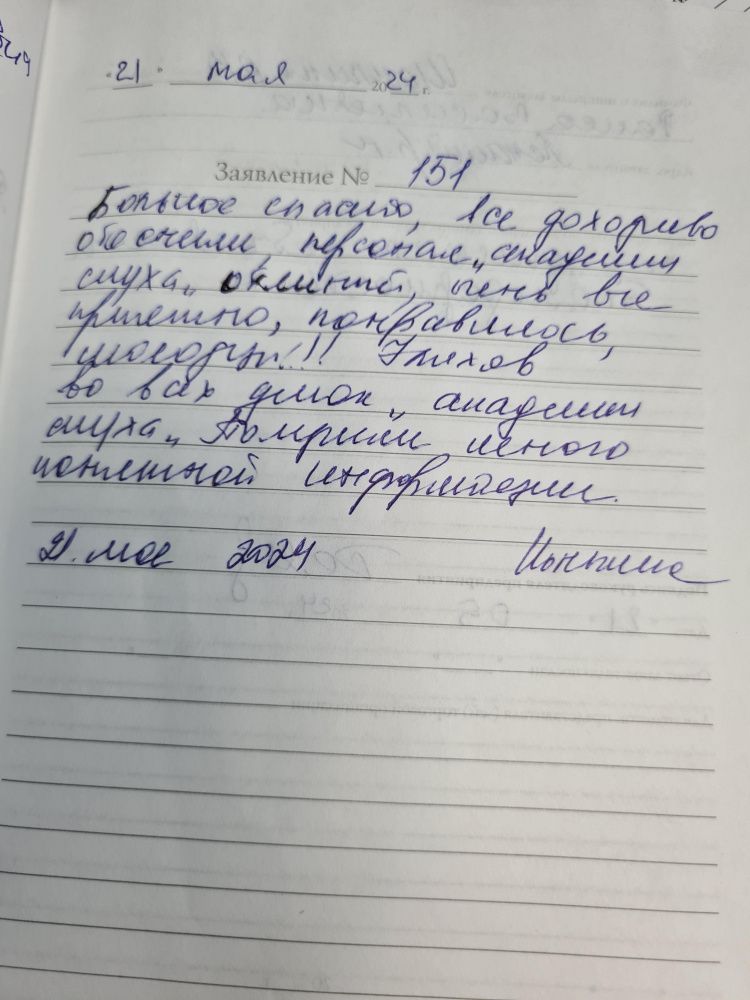 « 21 » мая 2024 г.
Заявление № 151
Большое спасибо, все дохориво
обеснили, персонал „академии
слуха„ очень все
приятно, понравилось,
молодцы!!! Успехов
во всех делах „академии
слуха„ много
понятной информации.
21. мае 2024